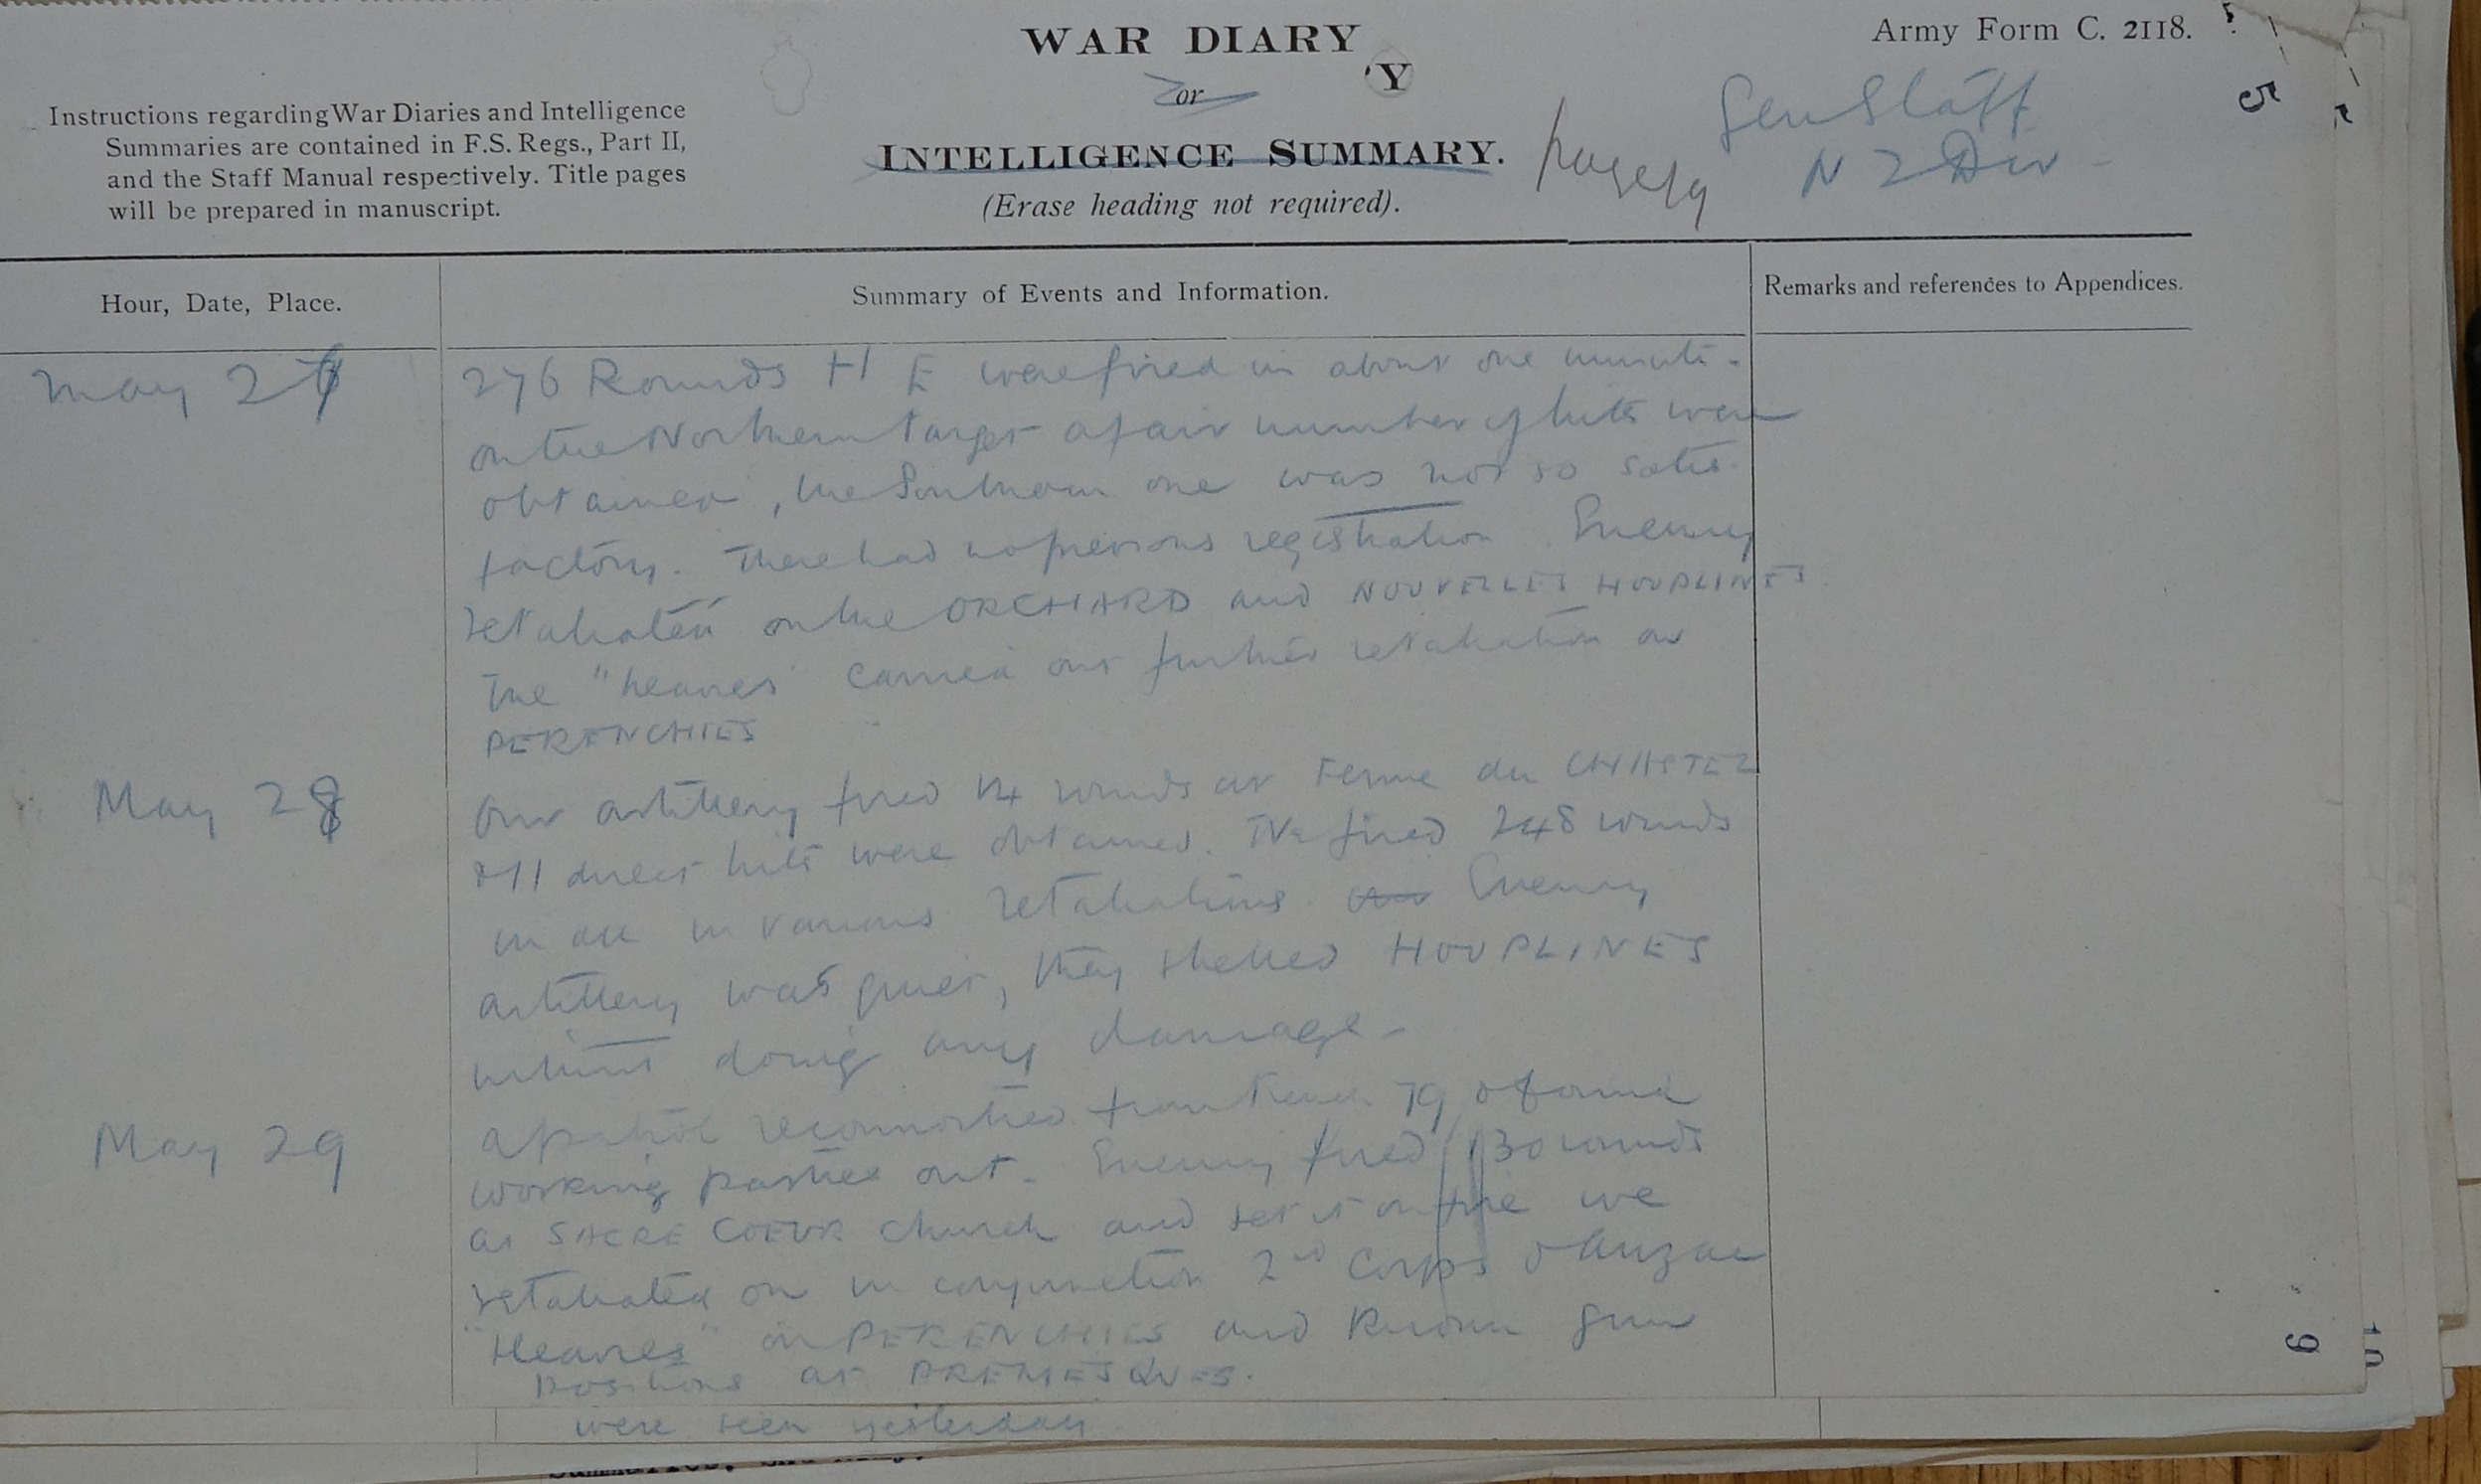 WAR DIARY
Army Form C. 2118.
or
Y
INTELLIGENCE SUMMARY.
(Erase heading not required).
Instructions regarding War Diaries and Intelligence
Summaries are contained in F.S. Regs., Part II,
and the Staff Manual respectively. Title pages
will be prepared in manuscript.
page 9
Gen Staff
N Z Div
Hour, Date, Place.
Summary of Events and Information.
Remarks and references to Appendices.
May 27
276 Rounds H E were fired in about one minute -
on the Northern target a fair number of hits were
obtained, the Southern one was not so satis
factory. There had no previous registration. Enemy
retaliated on the ORCHARD and NOUVELLES HOUPLINES
The "heavies" carried out further retaliation on
PERENCHIES
May 28
Our artillery fired 14 rounds at Ferme du CHASTEL
& 11 direct hits were obtained. We fired 248 rounds
in all in various retaliations. Enemy
artillery was quiet, they shelled HOUPLINES
without doing any damage -
May 29
A patrol reconnoitred from trench 79 & found
working parties out. Enemy fired 130 rounds
at SACRE COEUR church and set it on fire we
retaliated on in conjunction 2nd Corps & Anzac
"Heavies" on PERENCHIES and Known gun
positions at PREMESQUES.
were seen yesterday
5
9
10